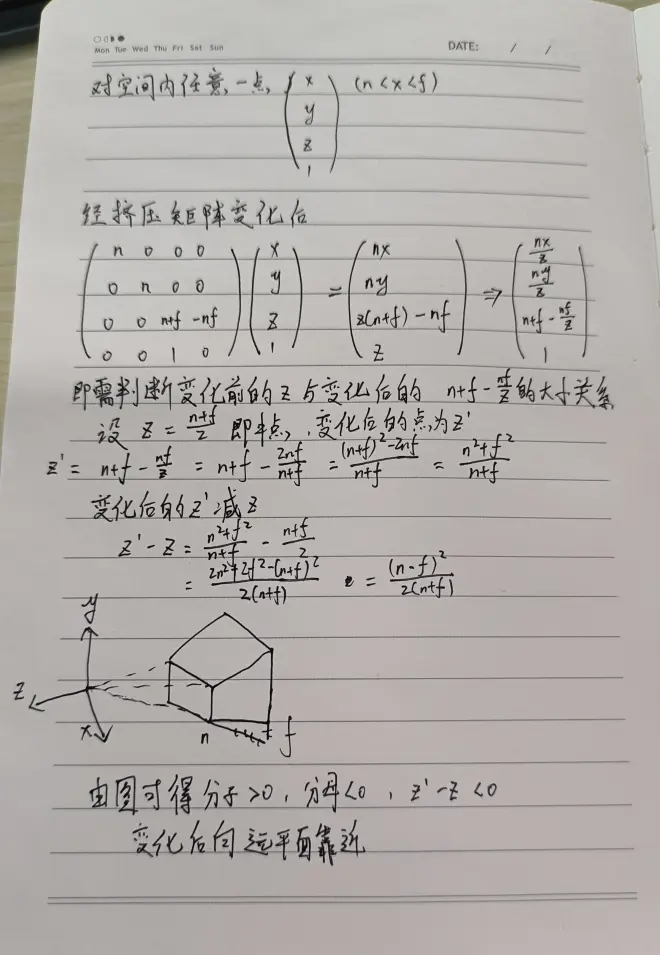 Mon Tue Wed Thu Fri Sat Sun DATE: / /
对空间内任意一点 (x y z 1) (n<x<f)
经挤压矩阵变化后
(n 0 0 0; 0 n 0 0; 0 0 n+f -nf; 0 0 1 0) (x y z 1) = (nx ny z(n+f)-nf z) ⇒ (nx/z ny/z n+f-nf/z 1)
即需判断变化前的z与变化后的 n+f-nf/z的大小关系
设 z = n+f/2 即中点, 变化后的点为z'
z' = n+f - nf/z = n+f - 2nf/n+f = (n+f)²-2nf/n+f = n²+f²/n+f
变化后的z'减z
z'-z = n²+f²/n+f - n+f/2
= 2n²+2f²-(n+f)²/2(n+f) = (n-f)²/2(n+f)
y
z
x
n
f
由图可得分子>0, 分母<0, z'-z<0
变化后向远平面靠近